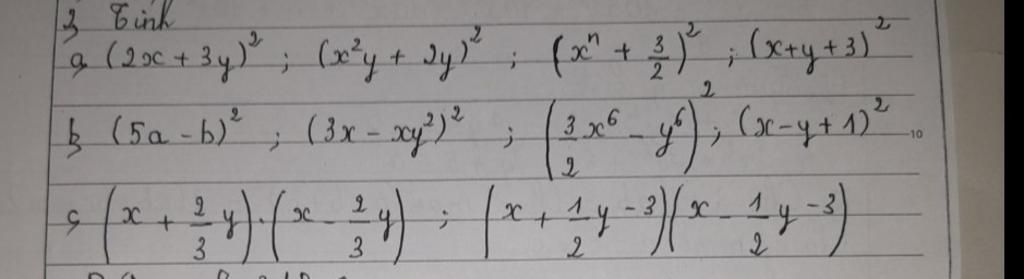 3, Tính
a, (2x + 3y)² ; (x²y + 2y)² ; (xⁿ + 3/2)² ; (x+y+3)²
b, (5a - b)² ; (3x - xy²)² ; (3/2 x⁶ - y⁶)² ; (x-y+1)²
c, (x + 2/3 y).(x - 2/3 y) ; (x + 1/2 y - 3)(x - 1/2 y - 3)